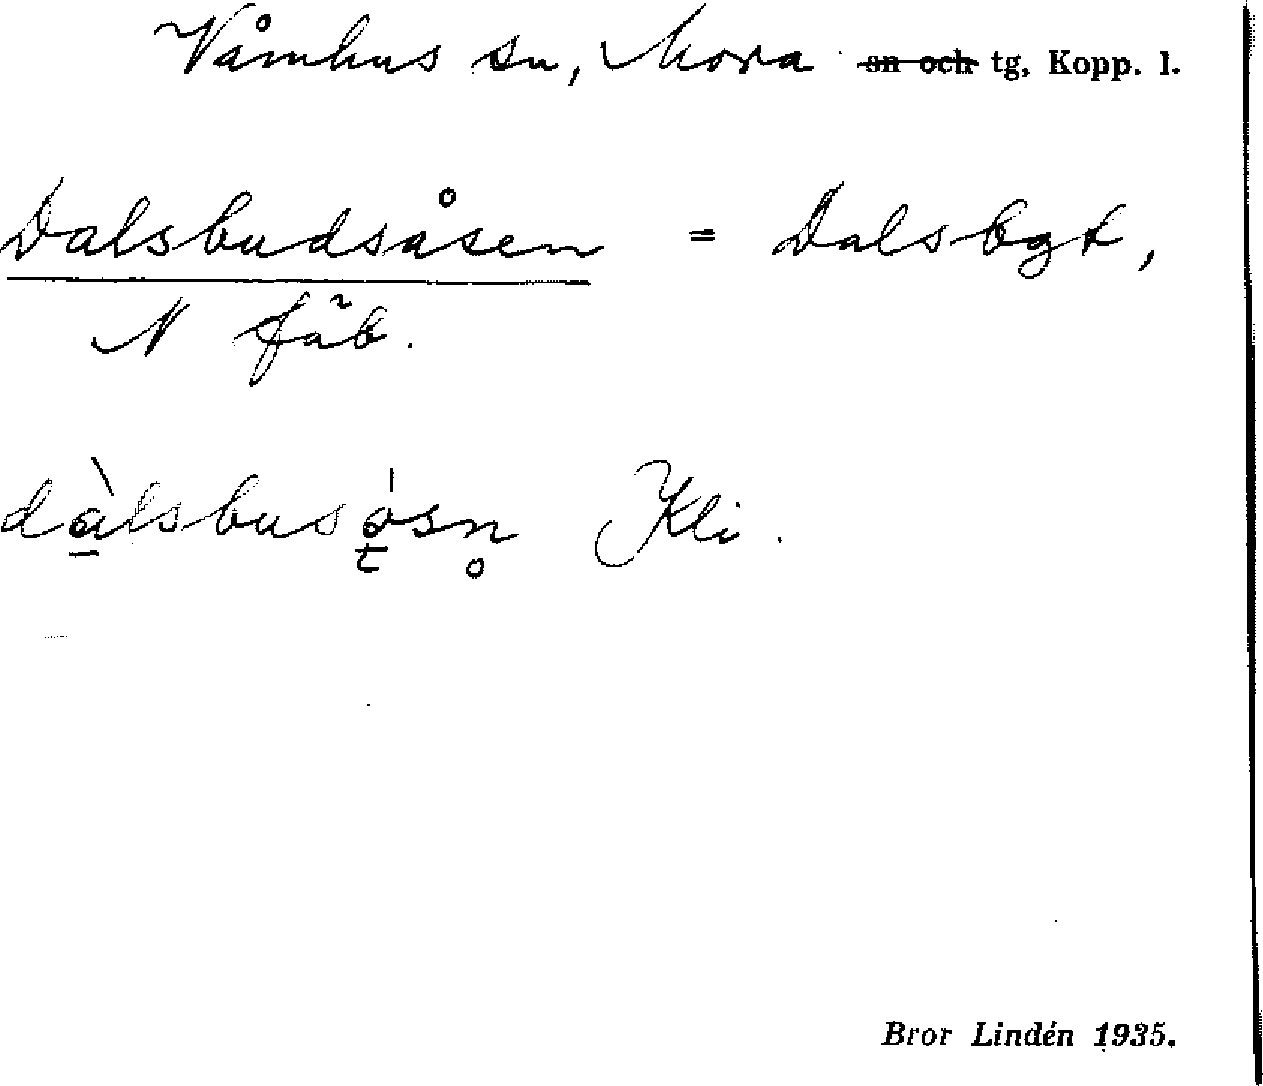 Våmhus sn, Mora sn och tg, Kopp. l.
Dalsbudsåsen = Dalsbgt,
N fäb.
dàlsbusósn̥ Kli.
Bror Lindén 1935.